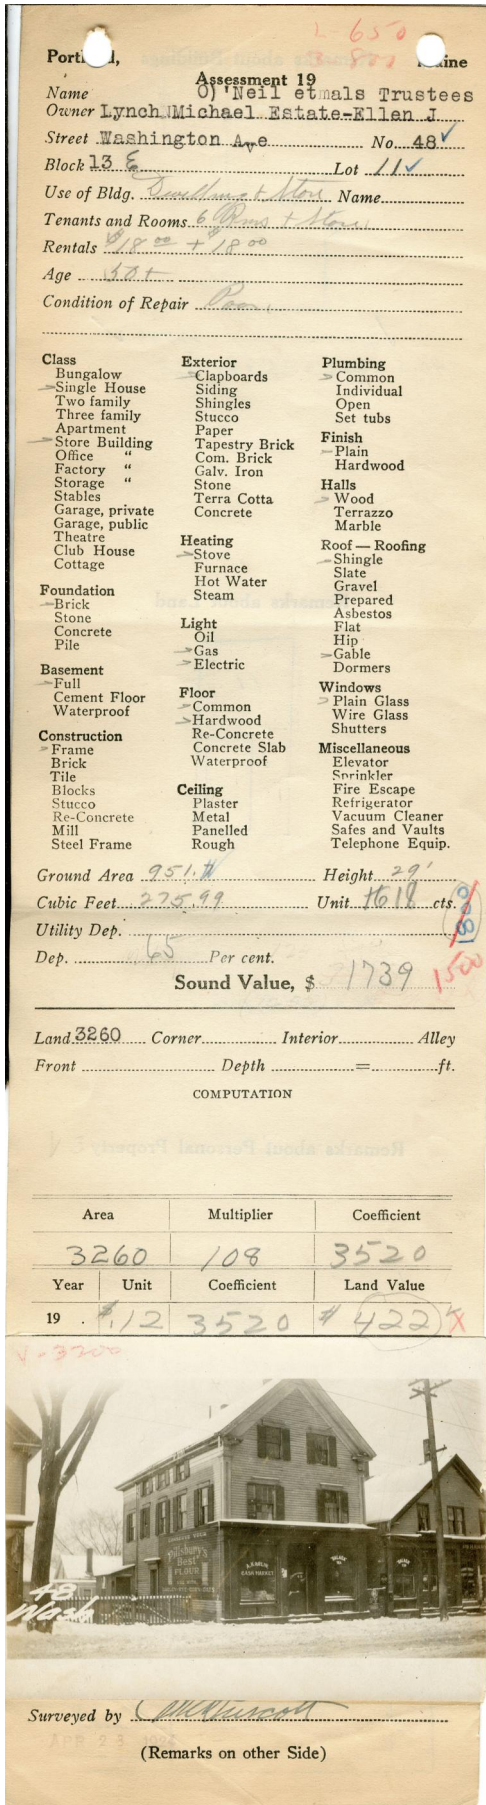 L-650
B 800
Portland, Maine
Assessment 19
O)'Neil etmals Trustees
Name
Owner Lynch Michael Estate-Ellen J
Street Washington Ave No. 48 ✓
Block 13 E Lot 11 ✓
Use of Bldg. Dwelling + Store Name
Tenants and Rooms 6 Rms + Store
Rentals $18 00 + $18 00
Age 50+
Condition of Repair Poor
Class
Bungalow
Single House
Two family
Three family
Apartment
Store Building
Office "
Factory "
Storage "
Stables
Garage, private
Garage, public
Theatre
Club House
Cottage
Foundation
Brick
Stone
Concrete
Pile
Basement
Full
Cement Floor
Waterproof
Construction
Frame
Brick
Tile
Blocks
Stucco
Re-Concrete
Mill
Steel Frame
Exterior
Clapboards
Siding
Shingles
Stucco
Paper
Tapestry Brick
Com. Brick
Galv. Iron
Stone
Terra Cotta
Concrete
Heating
Stove
Furnace
Hot Water
Steam
Light
Oil
Gas
Electric
Floor
Common
Hardwood
Re-Concrete
Concrete Slab
Waterproof
Ceiling
Plaster
Metal
Panelled
Rough
Plumbing
Common
Individual
Open
Set tubs
Finish
Plain
Hardwood
Halls
Wood
Terrazzo
Marble
Roof — Roofing
Shingle
Slate
Gravel
Prepared
Asbestos
Flat
Hip
Gable
Dormers
Windows
Plain Glass
Wire Glass
Shutters
Miscellaneous
Elevator
Sprinkler
Fire Escape
Refrigerator
Vacuum Cleaner
Safes and Vaults
Telephone Equip.
Ground Area 951 Height 29'
Cubic Feet 275.99 Unit cts.
1800
Utility Dep.
Dep. 65 Per cent.
1500
Sound Value, $ 1739
Land 3260 Corner Interior Alley
Front Depth = ft.
COMPUTATION
Remarks about Personal Property
Area Multiplier Coefficient
3260 108 3520
Year Unit Coefficient Land Value
19 . $.12 3520 $ 422
V-3200
Pillsbury's
Best
FLOUR
48
Wash
Surveyed by
APR 23
(Remarks on other Side)